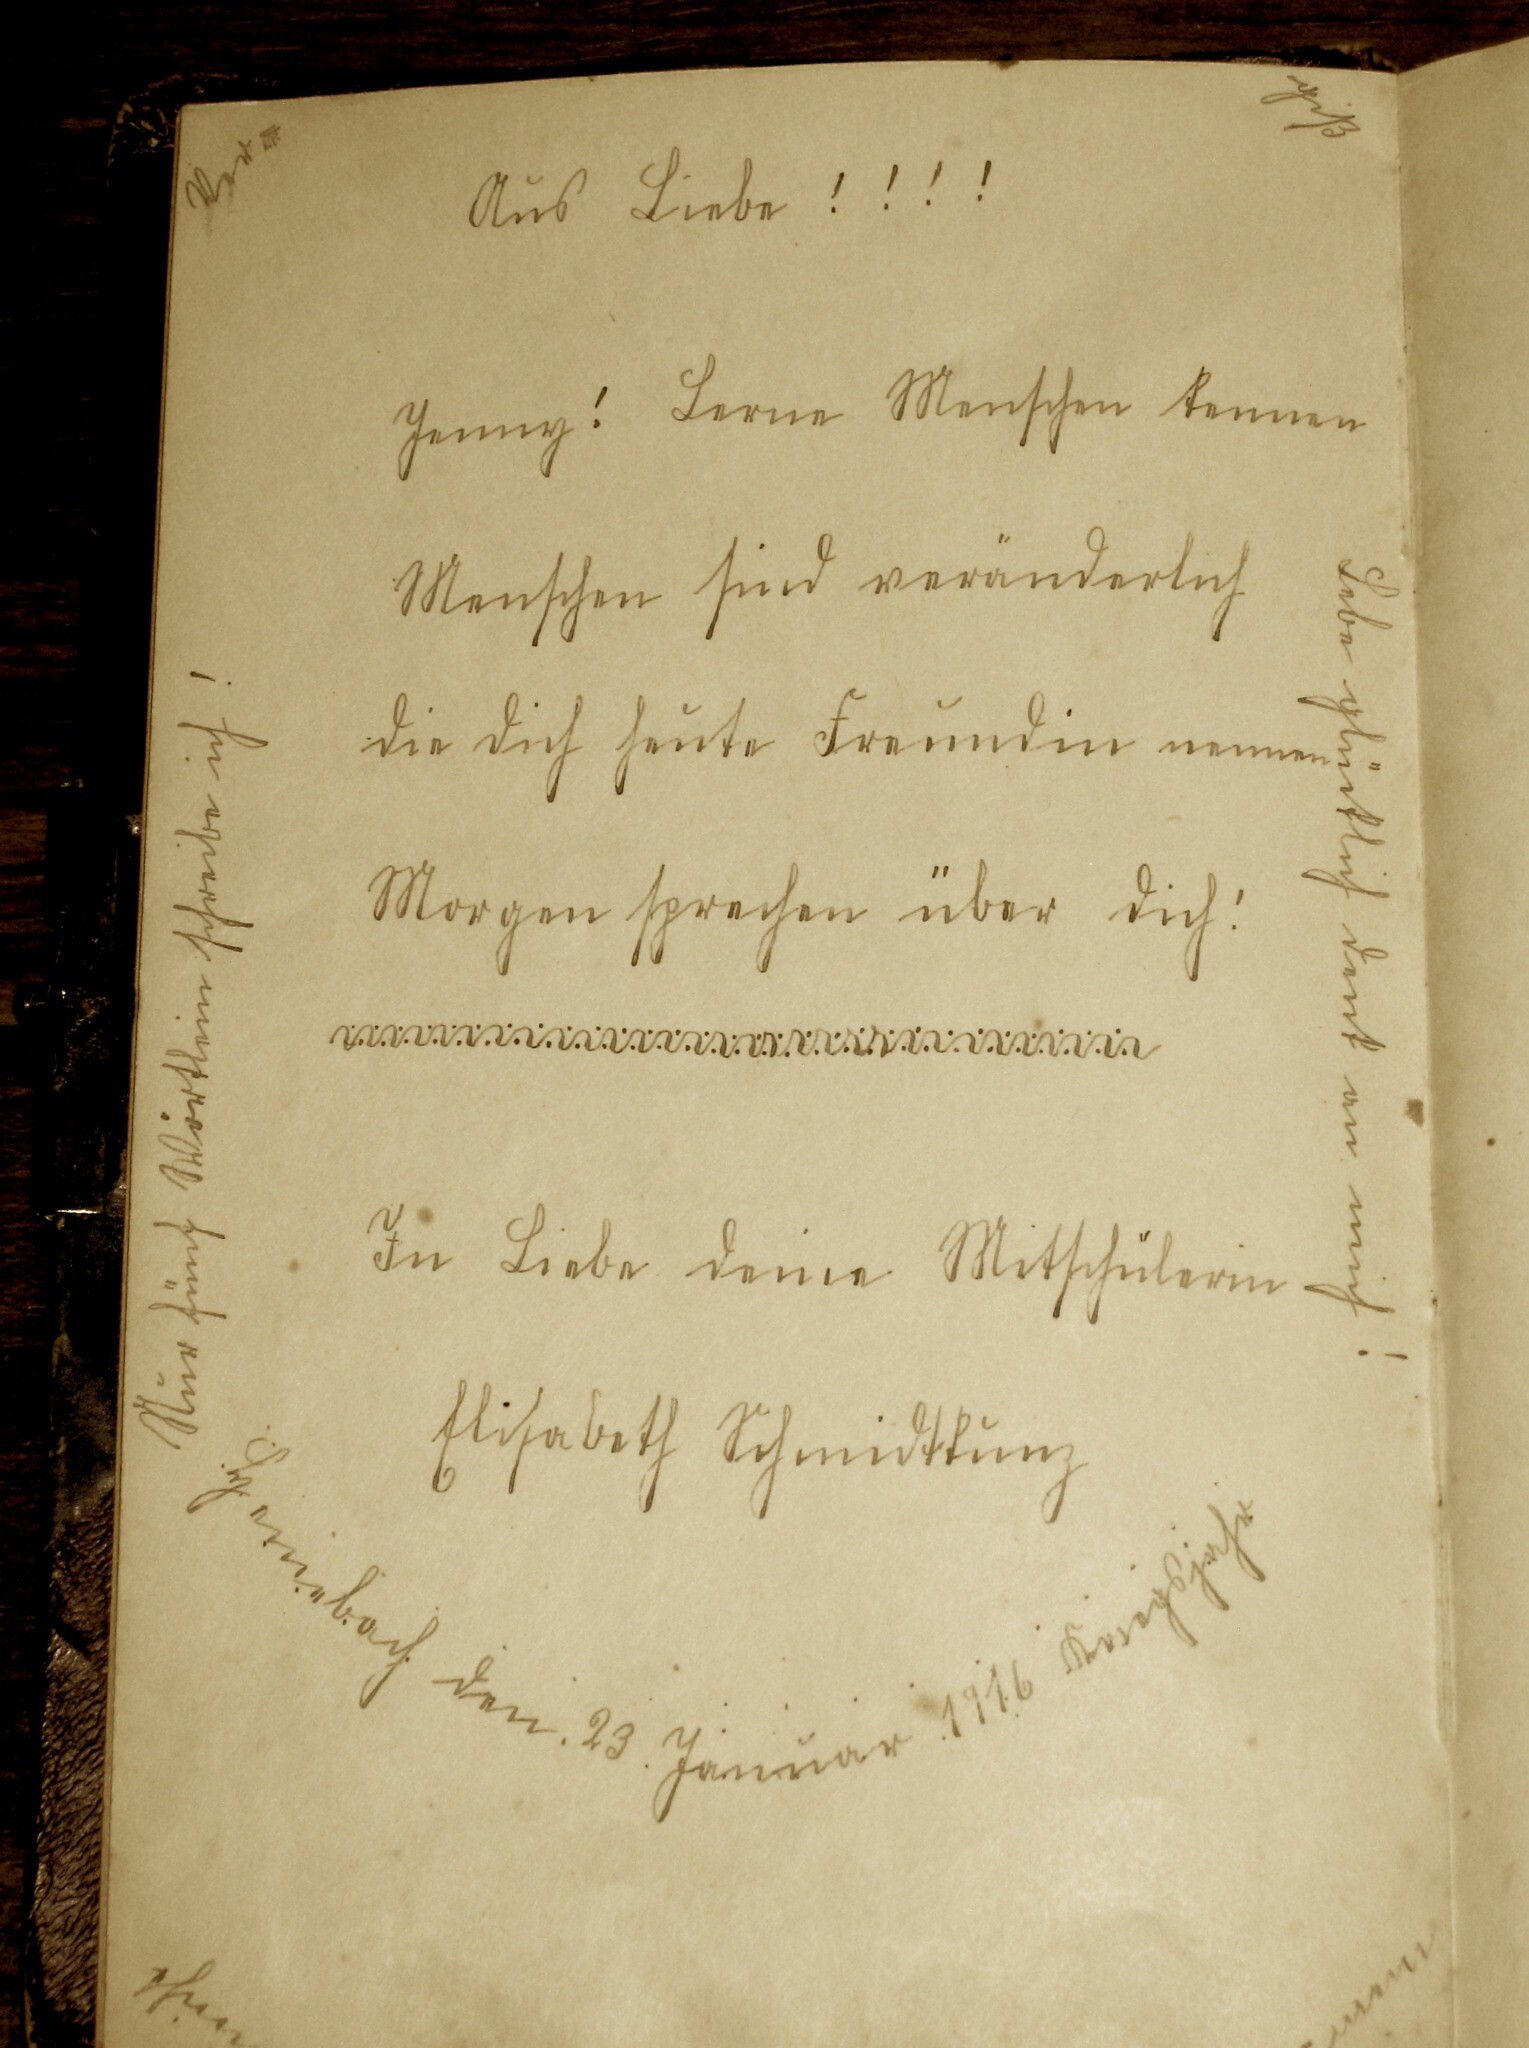 Ver=
giß
Aus Liebe ! ! ! !
Jenny! Lerne Menschen kennen
Menschen sind veränderlich
die dich heute Freundin nennen
Morgen sprechen über dich!
In Liebe deine Mitschülerin
Elisabeth Schmidtkunz
den 23. Januar 1916 Kriegsjahr
Nur fünf Wörtlein schreibe ich!
Lebe glücklich denk an mich!
nicht